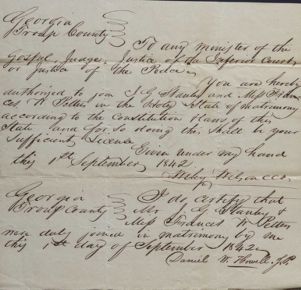 Georgia
Troup County
To any minister of the
Gospel, Judge, Justice of the Inferior Court,
or Justice of the Peace.
You are hereby
authorized to join J. G. Stanley and Miss Fran
ces
in the Holy State of matrimony
according to the Constitution & laws of this
State and for so doing this shall be your
sufficient License
Given under my hand
this 1st September 1842
Wilson CCO
Georgia
Troup County
I do certify that
Mr J G Stanley &
Miss Frances
were duly joined in matrimony by me
this day of September 1842
Daniel W.